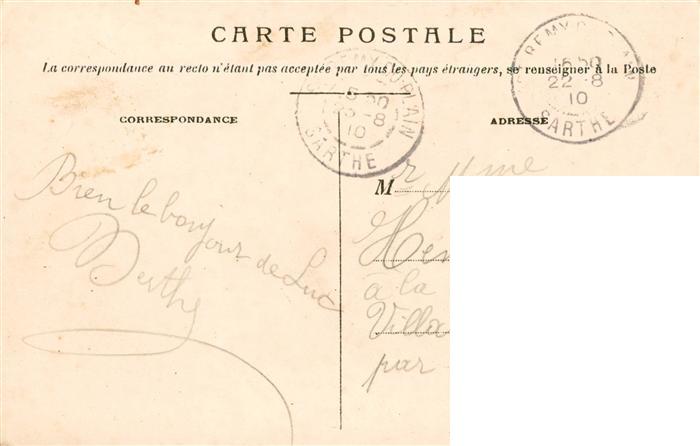 CARTE POSTALE
La correspondance au recto n'étant pas acceptée par tous les pays étrangers, se renseigner à la Poste
REMY DU PLAIN
15 50
22 -8
10
SARTHE
REMY
15 50
22 -8
10
SARTHE
CORRESPONDANCE
ADRESSE
Bien le bonjour de Luc
Berthe
Mr Mme
à la
Villa
par